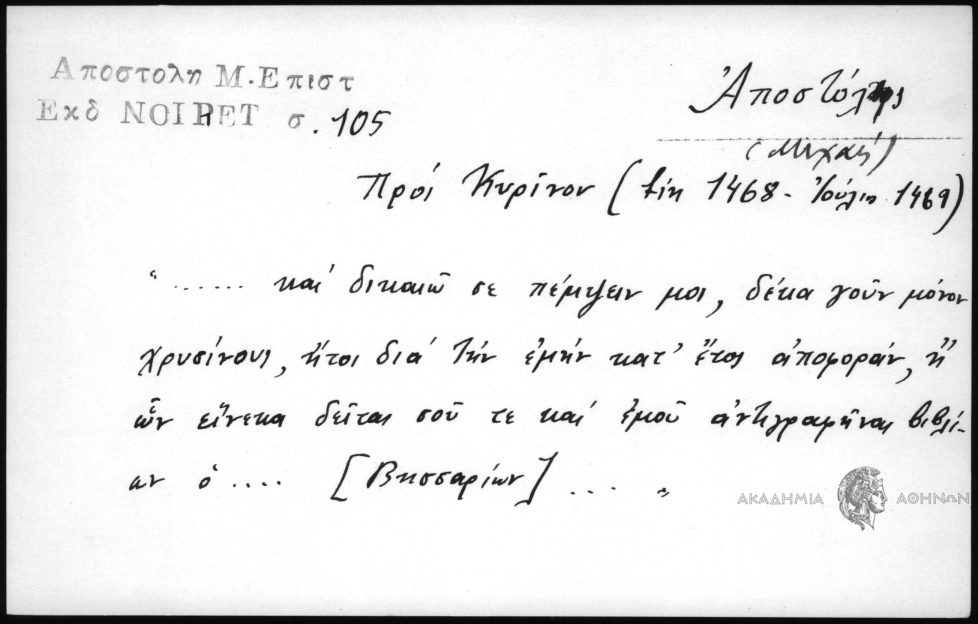 Αποστολη Μ. Επιστ
Εκδ NOIRET σ. 105
Ἀποστόλης
(Μιχαήλ)
Πρός Κυρῖνον ( 1468 - Ἰούλιος 1469)
“ ...... καί δικαιῶ σε πέμψειν μοι, δέκα γοῦν μόνον
χρυσίνους, ἤτοι διά τήν ἐμήν κατ' ἔτος ἀποφοράν, ἤ
ὧν εἵνεκα δεῖται σοῦ τε καί ἐμοῦ ἀντιγραφῆναι βιβλί-
ων ὁ .... [Βησσαρίων] .... „
ΑΚΑΔΗΜΙΑ ΑΘΗΝΩΝ